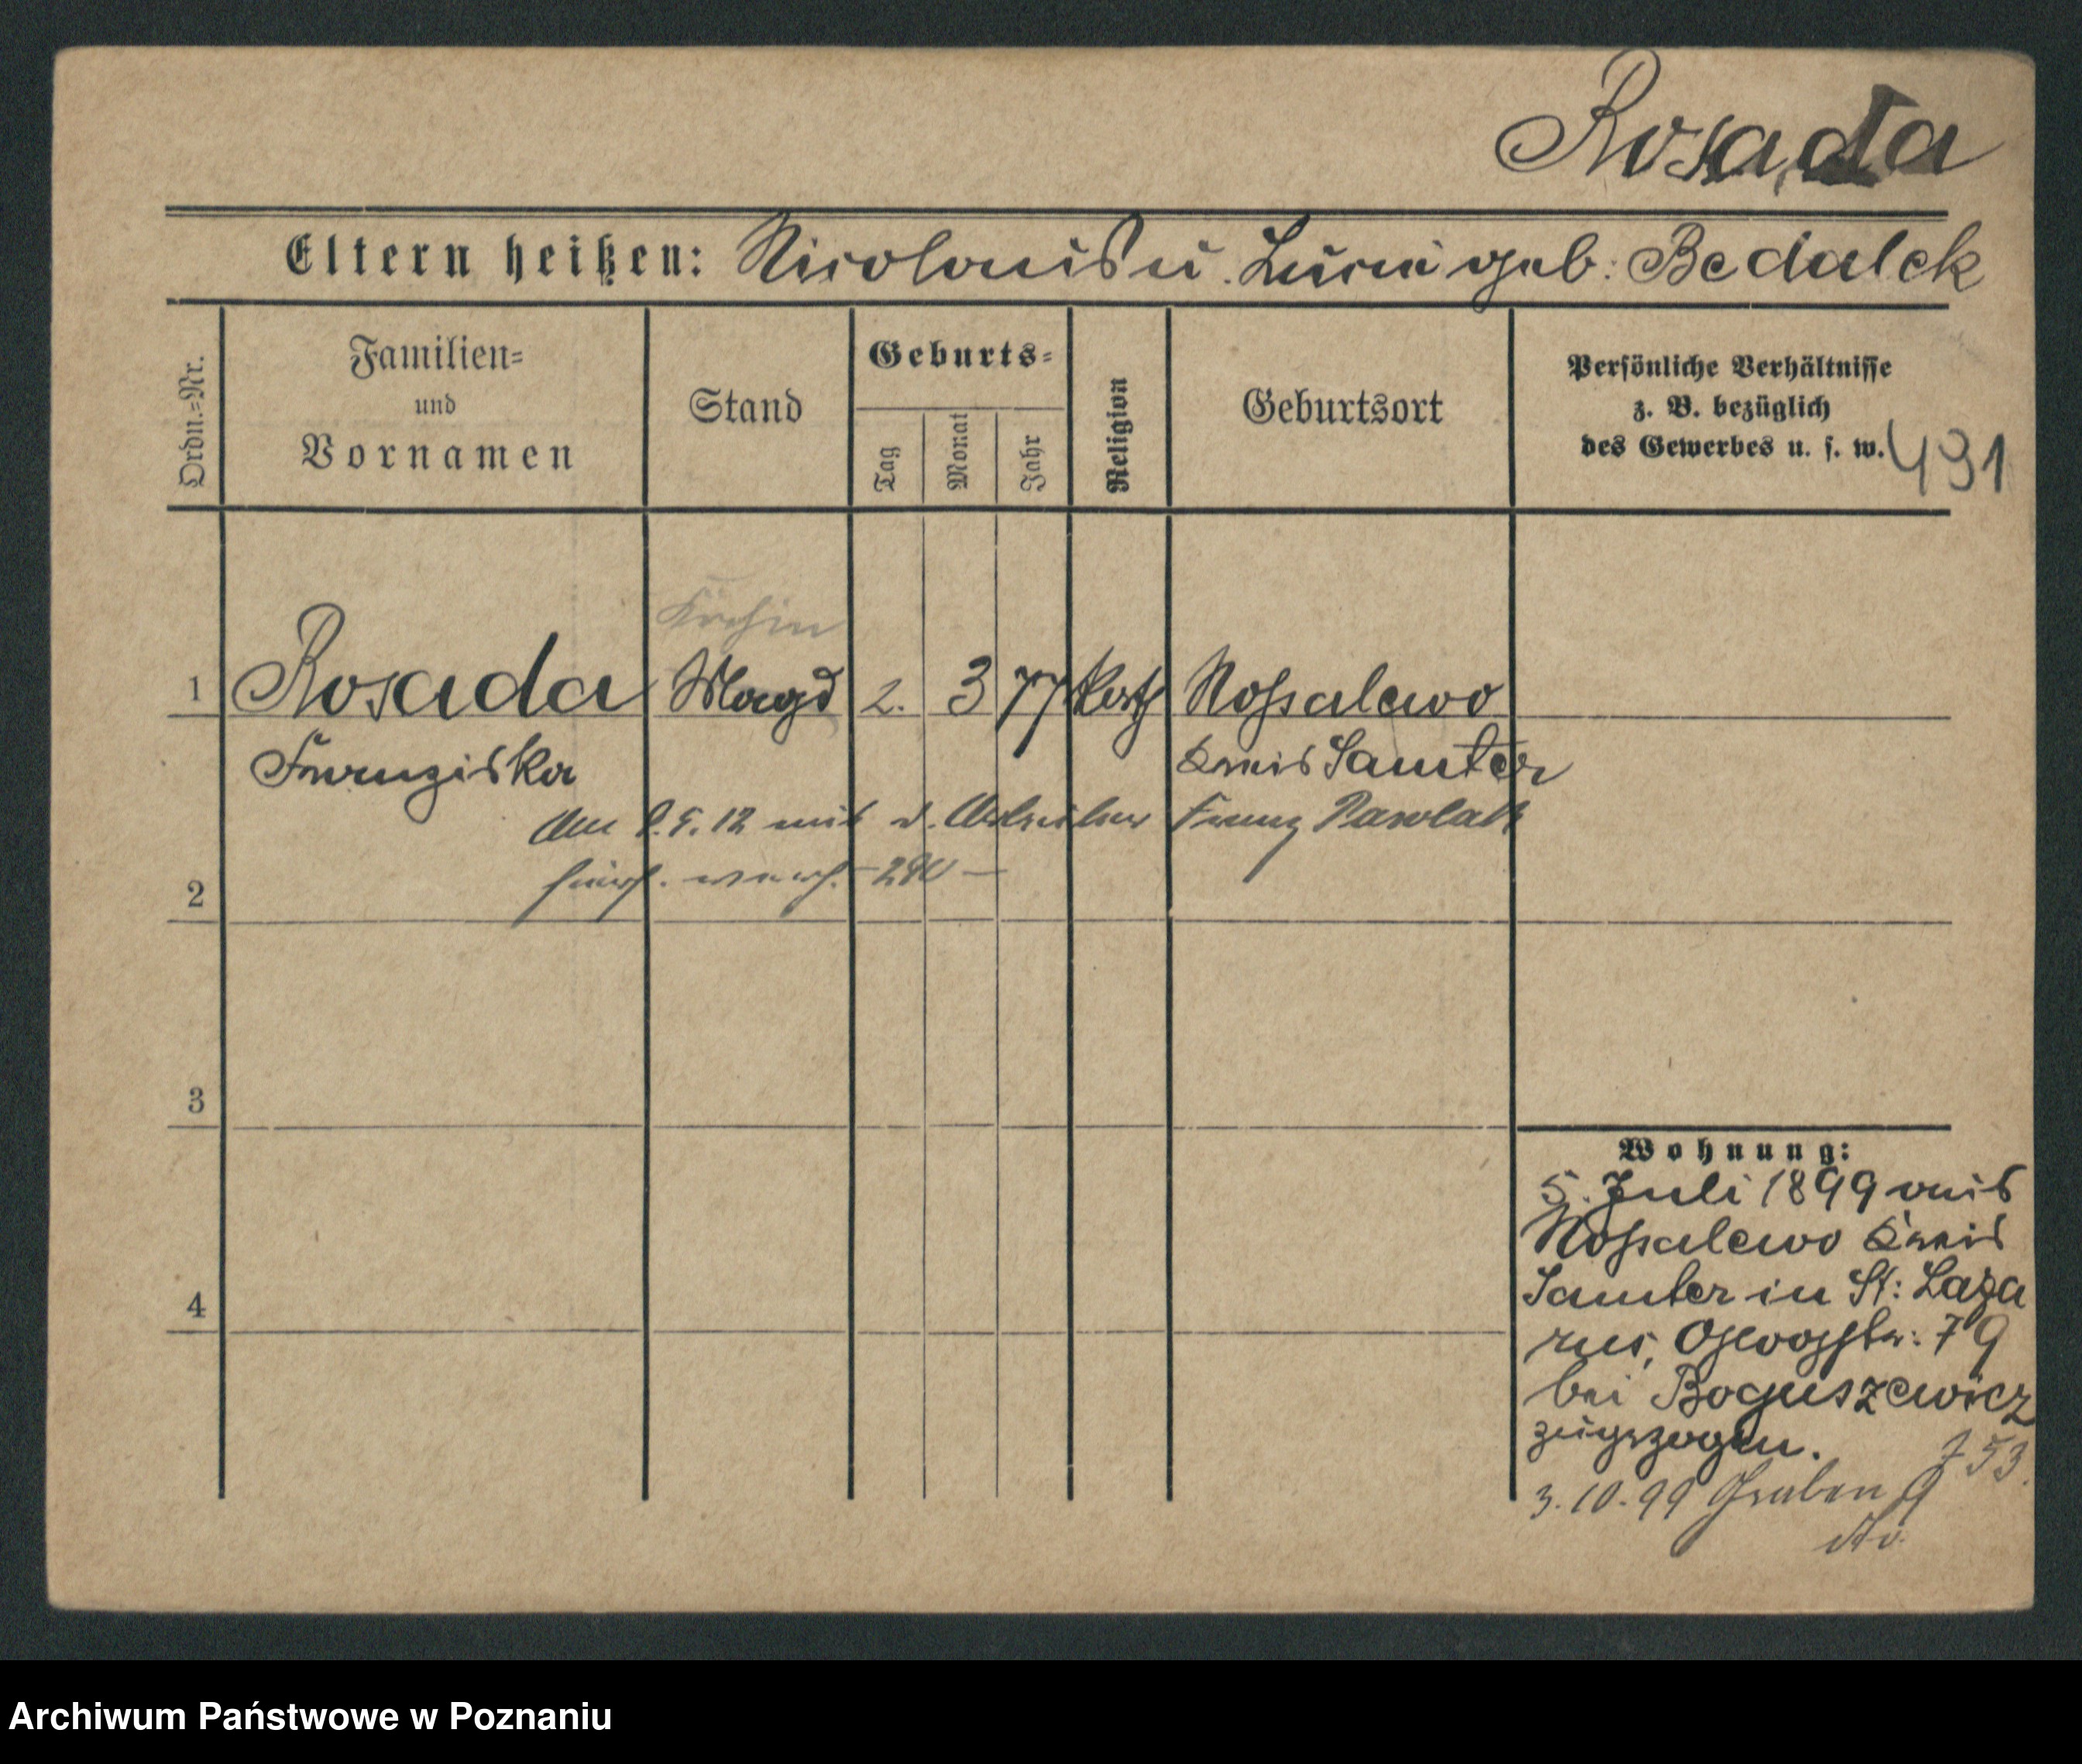 Rosada
Eltern heißen: Nicolaus u. Lucia geb: Bedalek
Ordn.=Nr.
Familien=
und
Vornamen
Stand
Geburts=
Tag
Monat
Jahr
Religion
Geburtsort
Persönliche Verhältnisse
z. B. bezüglich
des Gewerbes u. s. w.
491
Köchin
1 Rosada Magd 2. 3 77 kath Nossalewo
Franziska Kreis Samter
Am 12 mit d. Arbeiter Franz Pawlak
2 verh.
3
4
Wohnung:
5. Juli 1899 aus
Nossalewo Kreis
Samter in St: Laza
rus, 79
bei Boguszewicz
zugezogen.
753.
3.10.99 Graben 9
Archiwum Państwowe w Poznaniu